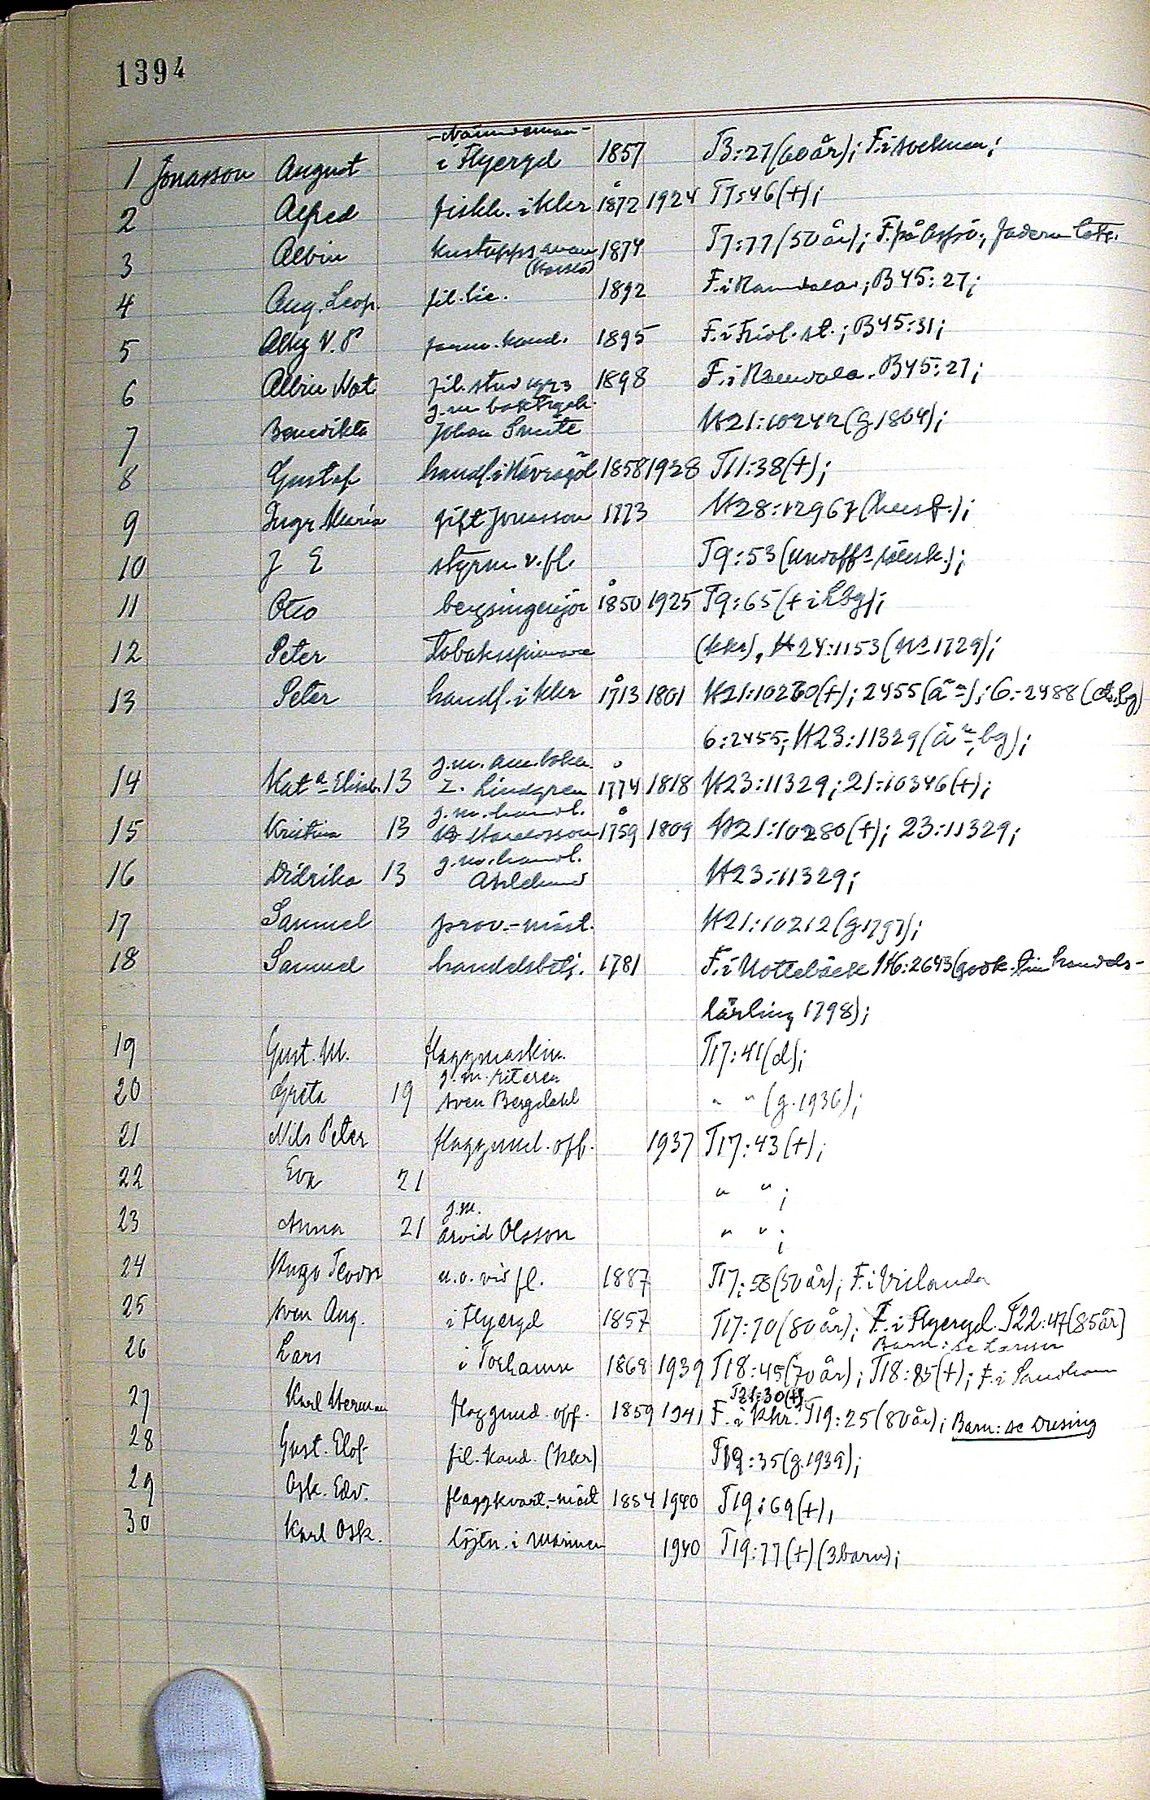 1394
Nämndeman
1 Jonasson August i Flyeryd 1857 T3:27(60 år); F.i socknen;
2 Alfred fiskh. i Kkr 1872 1924 T7:46(+);
3 Albin kustuppsman 1874 T7:77(50 år); F.på Aspö; fadern lots.
4 Aug. Leop. fil.lic. 1892 F.i Ramdala; B45:27;
5 Alty V. P farm.kand. 1895 F.i Fridl.st.; B45:31;
6 Albin Nat fil.stud 1923 1898 F.i Ramdala. B45:27;
g.m. boktryck.
7 Benedikta Johan Smitt H21:10242(g.1804);
8 Gustaf handl.i 1858 1928 T11:38(+);
9 Inga Maria gift Jonasson 1773 H28:12967
10 J E styrm. v. fl. T9:53
11 Otto bergsingenjör 1850 1925 T9:65(+ i Hbg);
12 Peter Tobaksspinnare (kkr), H24:1153(No 1729);
13 Peter handl. i Kkr 1713 1801 H21:10260(+); 2455 6:2488
6:2455; H23:11329
g.m.
14 Kat a Elisab. 13 Z. Lindgren 1774 1818 H23:11329; 21:10346(+);
g.m. handl.
15 Kristina 13 1759 1809 H21:10280(+); 23:11329;
g.m. handl.
16 Didrika 13 Ahlelund H23:11329;
17 Samuel prov.-mäst. H21:10212(g.1797);
18 Samuel handelsbetj. 1781 F.i Nottebäck H6:2643 handels-
lärling 1798);
19 Gust. M. flaggmaskin. T17:41(d);
g.m. ritaren
20 Greta 19 Sven Bergdahl " " (g.1936);
21 Nils Peter flaggund.off. 1937 T17:43(+);
22 Eva 21 " " ;
g.m.
23 Anna 21 Arvid Olsson " " ;
24 Hugo Teodor u.o. vid fl. 1887 T17:58(50 år); F.i Virlanda
25 Sven Aug. i Flyeryd 1857 T17:70(80 år); F.i Flyeryd. T22:47(85 år)
Barn: se Larsson
26 Lars i Torhamn 1869 1939 T18:45(70 år); T18:85(+); F.i Sandhamn
T21:30(+)
27 Karl Herman flaggund. off. 1859 1941 F.i Khr. T19:25(80 år); Barn: se Dresing
28 Gust. Elof fil. kand. (kkr) T19:35(g.1939);
29 Osk. Edv. flaggkvart.-mäst 1854 1940 T19:69(+),
30 Karl Osk. löjtn. i Marinen 1940 T19:77(+)(3 barn);